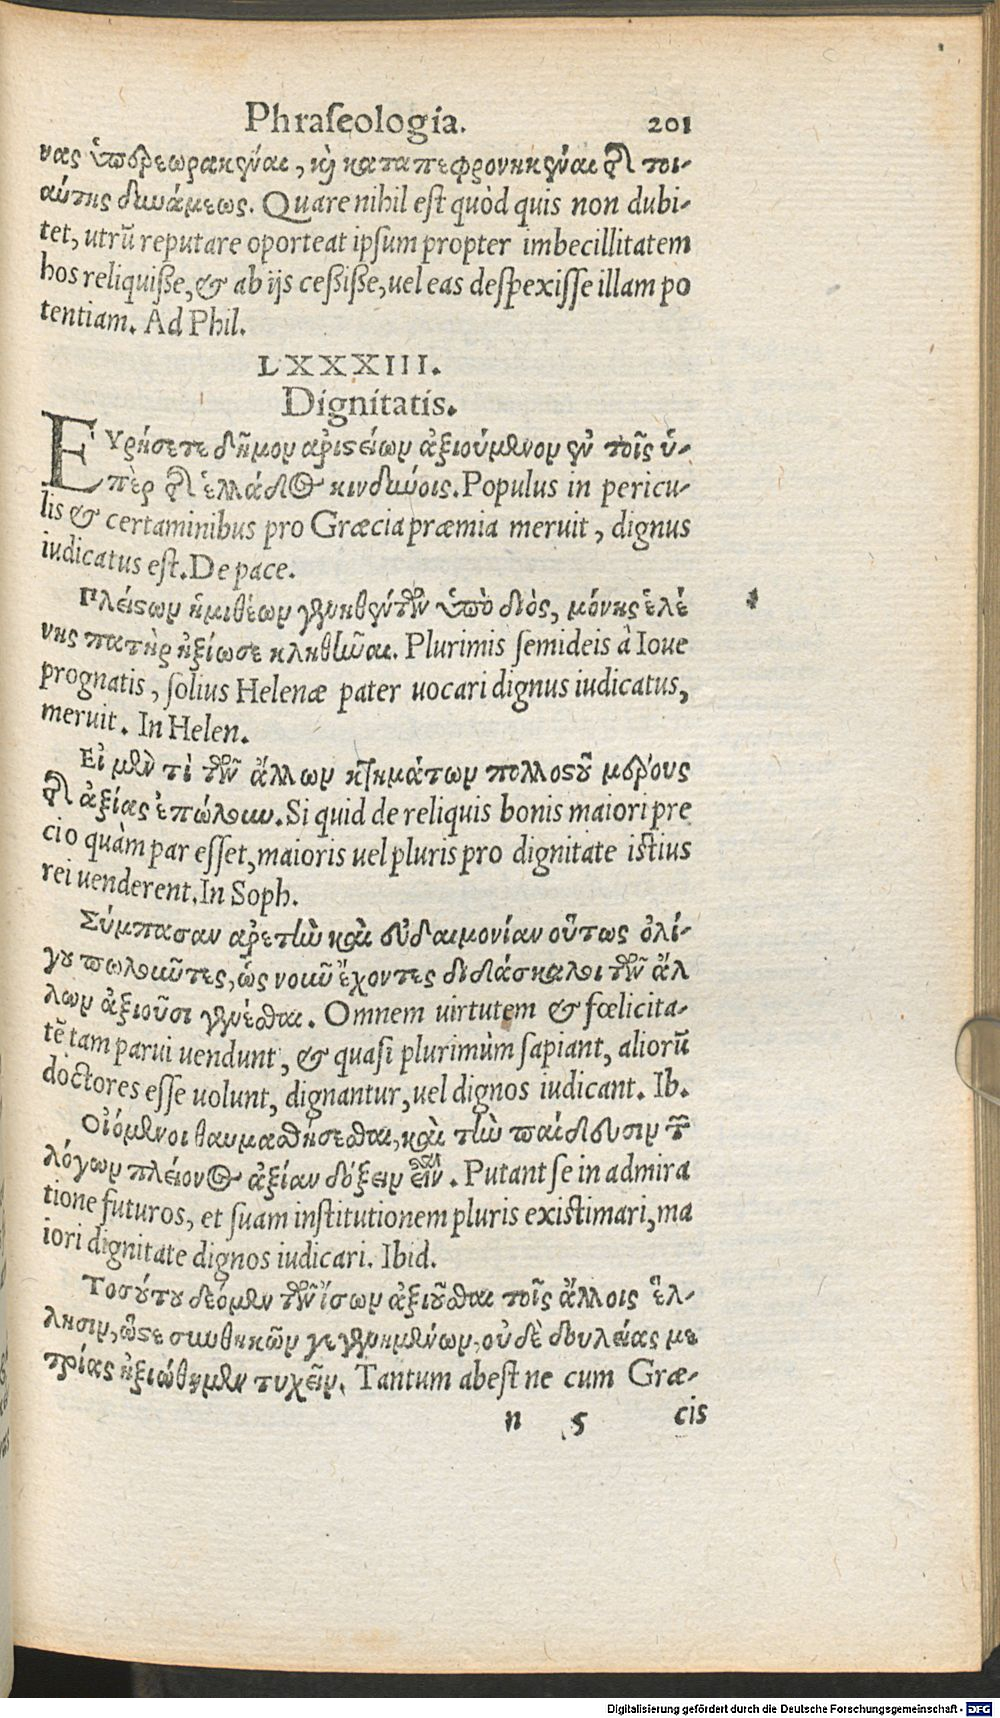 Phraſeologia. 201
νας ὑπερεωρακέναι, κὴ καταπεφρονηκέναι τῆς τοι-
αύτης δυνάμεως. Quare nihil eſt quòd quis non dubi-
tet, utrũ reputare oporteat ipſum propter imbecillitatem
hos reliquiſſe, & ab ijs ceſſiſſe, uel eas deſpexiſſe illam po
tentiam. Ad Phil.
LXXXIII.
Dignitatis.
Εὑρήσετε δῆμον ἀριϛείων ἀξιούμενον ἐν τοῖς ὑ-
πὲρ τῆς ἑλλάδος κινδύνοις. Populus in pericu-
lis & certaminibus pro Græcia præmia meruit, dignus
iudicatus eſt. De pace.
Πλείϛων ἡμιθέων γεννηθέντων ὑπὸ διὸς, μόνης ἑλέ
νης πατὴρ ἠξίωσε κληθῆναι. Plurimis ſemideis à Ioue
prognatis, ſolius Helenæ pater uocari dignus iudicatus,
meruit. In Helen.
Εἰ μὲν τὶ τῶν ἄλλων κτημάτων πολλοϛοῦ μέρους
τῆς ἀξίας ἐπώλουν. Si quid de reliquis bonis maiori pre
cio quàm par eſſet, maioris uel pluris pro dignitate iſtius
rei uenderent. In Soph.
Σύμπασαν ἀρετὴν καὶ εὐδαιμονίαν οὕτως ὀλί-
γου πωλοῦντες, ὡς νοῦν ἔχοντες διδάσκαλοι τῶν ἄλ
λων ἀξιοῦσι γενέσθαι. Omnem uirtutem & fœlicita-
tẽ tam parui uendunt, & quaſi plurimùm ſapiant, aliorũ
doctores eſſe uolunt, dignantur, uel dignos iudicant. Ib.
Οἰόμενοι θαυμασθήσεσθαι, καὶ τὴν παίδευσιν τῶν
λόγων πλείονος ἀξίαν δόξειν εἶναι. Putant ſe in admira
tione futuros, et ſuam inſtitutionem pluris exiſtimari, ma
iori dignitate dignos iudicari. Ibid.
Τοσούτου δέομεν τῶν ἴσων ἀξιοῦσθαι τοῖς ἄλλοις ἕλ-
λησιν, ὥϛε συνθηκῶν γεγενημένων, οὐδὲ δουλείας με
τρίας ἠξιώθημεν τυχεῖν. Tantum abeſt ne cum Græ-
n 5 cis
Digitalisierung gefördert durch die Deutsche Forschungsgemeinschaft - DFG